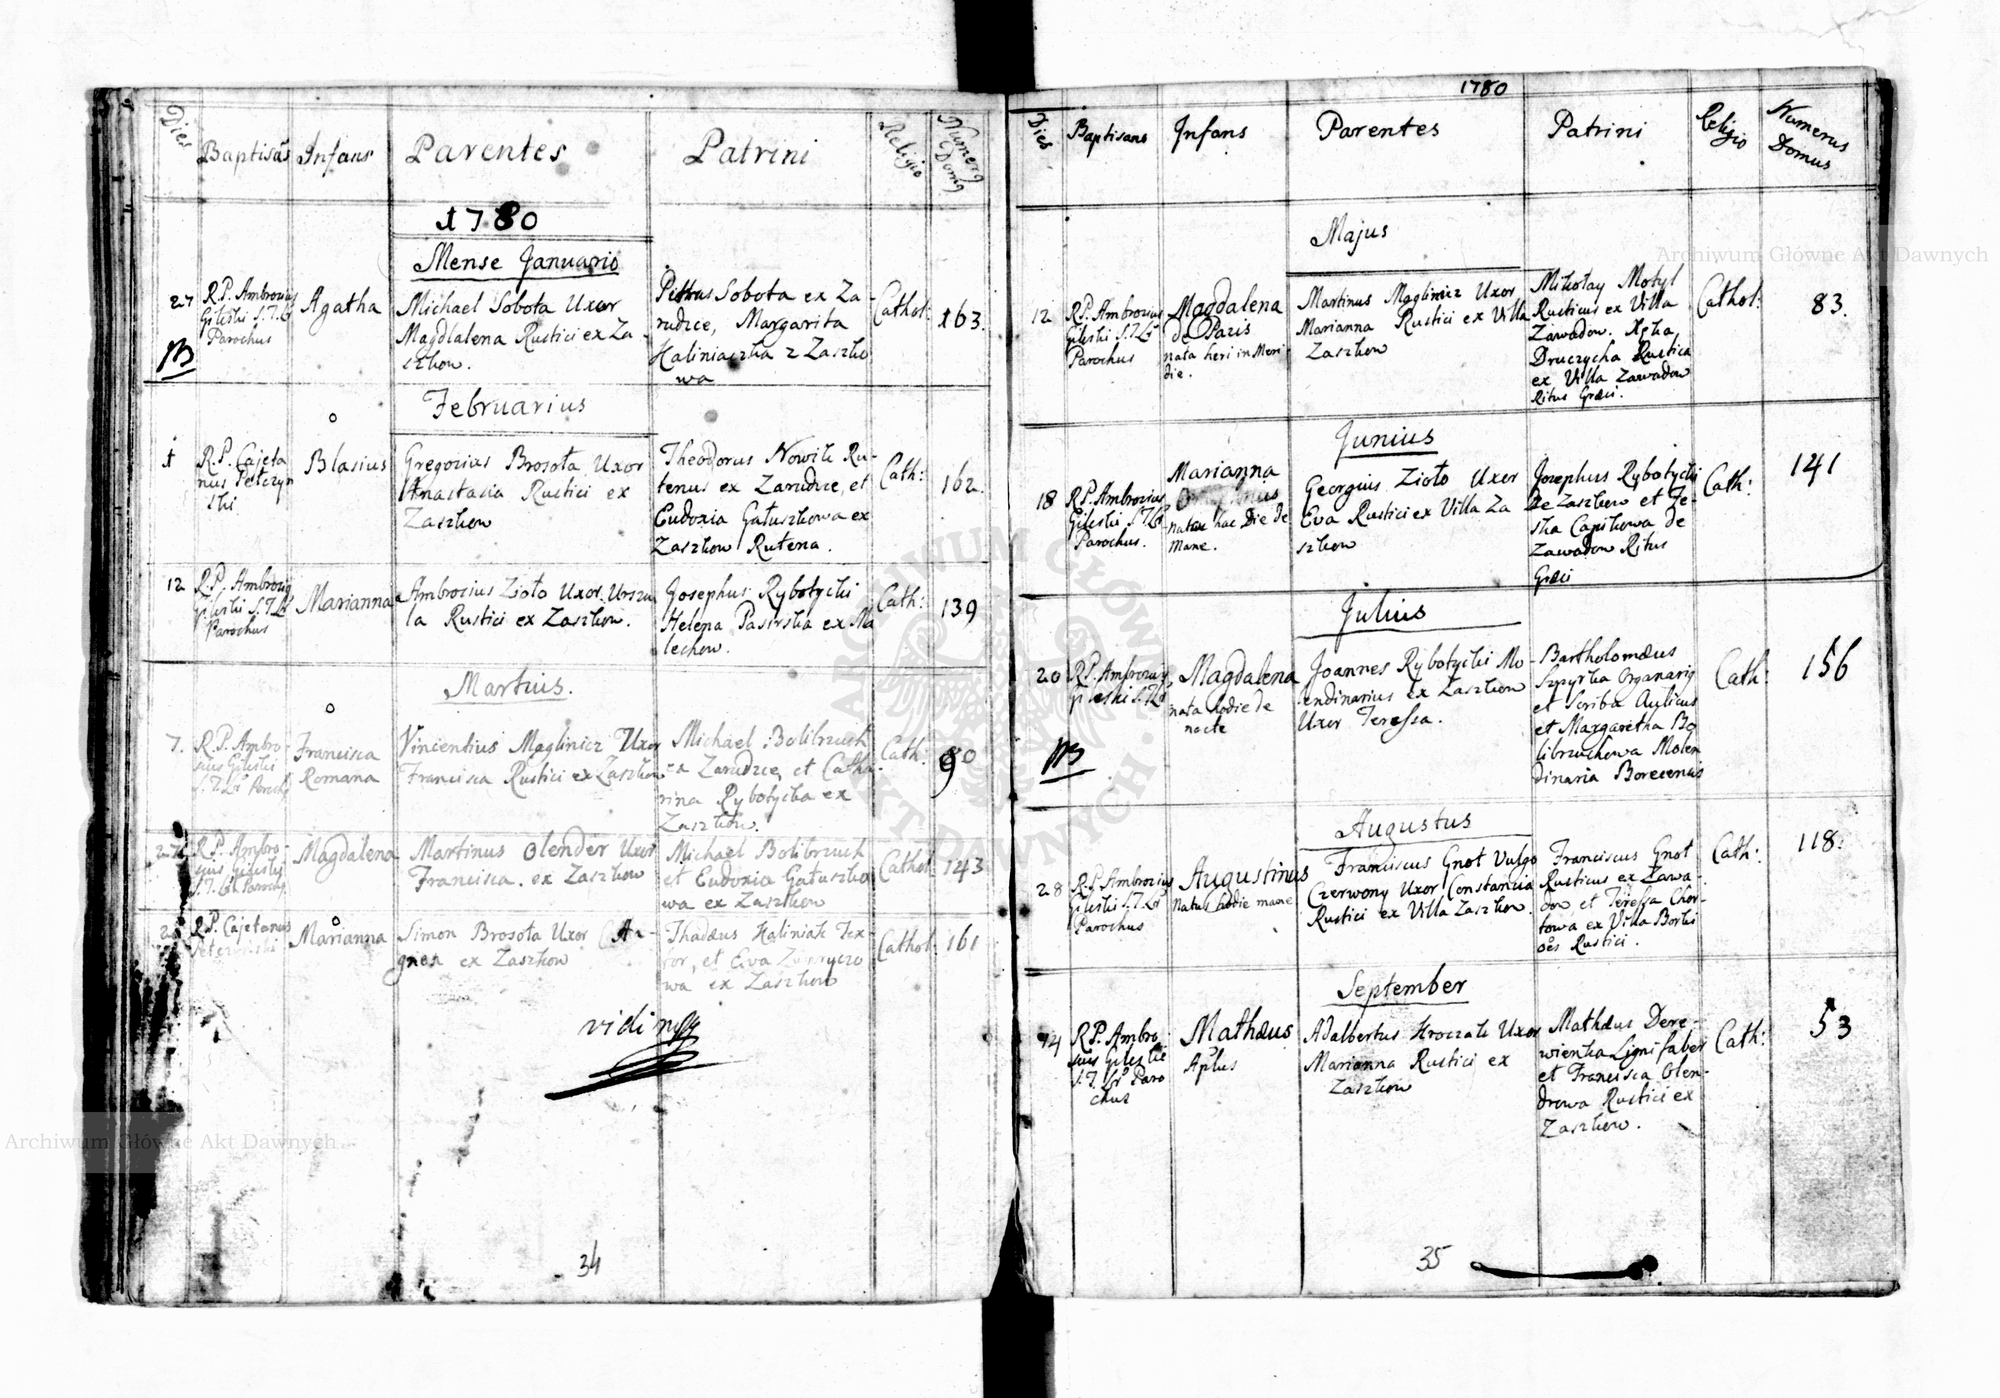 Dies
Baptisãs
Infans
Parentes
Patrini
Religio
Numerg Domg
1780
Mense Januario
27
R.P. Ambrosius
Gileski S.T.Lr
Parochus
Agatha
Michael Sobota Uxor
Magdlalena Rustici ex Za-
szkow.
Petrus Sobota ex Za-
rudzce, Margarita
Haliniaszka z Zaszko
wa
Cathol:
163.
NB
Februarius
1
R.P. Cajeta
nus Pełczyn
ski
Blasius
Gregorius Brosota Uxor
Anastasia Rustici ex
Zaszkow
Theodorus Nowik Ru-
tenus ex Zarudzce, et
Eudoxia Gałuszkowa ex
Zaszkow Rutena.
Cath:
162.
12
R.P. Ambrosig
Gileski S.T.Lr
Parochus
Marianna
Ambrosius Zioło Uxor Urszu
la Rustici ex Zaszkow.
Josephus Rybotycki
Helena Pasirska ex Ma
lechow.
Cath:
139
Martius.
7.
R.P. Ambro-
sius Gileski
S.T.Lr Paroch
Francisca
Romana
Vincentius Maglinicz Uxor
Francisca Rustici ex Zaszkow
Michael Bolibrzuch
ex Zarudzce, et Catha-
rina Rybotycka ex
Zaszkow.
Cath:
90
R.P. Ambro-
sius Gileski
S.T.Lr Parochg
Magdalena
Martinus Olender Uxor
Francisca. ex Zaszkow
Michael Bolibrzuch
et Eudoxia Gałuszko
wa ex Zaszkow
Cathol:
143
R.P. Cajetanus
Marianna
Simon Brosota Uxor A-
gnes ex Zaszkow
Thadæus Haliniak Tex-
tor, et Eva
wa ex Zaszkow
Cathol:
161
vidi
34
1780
Dies
Baptisans
Infans
Parentes
Patrini
Religio
Numerus
Domus
Majus
12
R.P. Ambrosius
Gileski S.T.Lr
Parochus
Magdalena
de Pazis
nata heri in Meri-
die.
Martinus Maglinicz Uxor
Marianna Rustici ex Villa
Zaszkow
Mikołay Motyl
Rusticus ex Villa
Zawadow.
Druczycha Rustica
ex Villa Zawadow
Ritus Græci.
Cathol:
83.
Junius
18
R.P. Ambrosius
Gileski S.T.Lr
Parochus.
Marianna
nata hac Die de
Mane.
Georgius Zioło Uxor
Eva Rustici ex Villa Za
szkow
Josephus Rybotycki
de Zaszkow et Te-
ska Capikowa de
Zawadow Ritus
Græci
Cath:
141
Julius
20
R.P. Ambrosius
Gileski S.T.Lr
Magdalena
nata hodie de
nocte
Joannes Rybotycki Mo-
lendinarius ex Zaszkow
Uxor Teressa.
Bartholomæus
Szpyrka Organarig
et Scriba Aulicus
et Margaretha Bo
librzuchowa Molen
dinaria Borecensis
Cath:
156
NB
Augustus
28
R.P. Ambrosius
Gileski S.T.Lr
Parochus
Augustinus
Natus hodie mane
Franciscus Gnot Vulgo
Czerwony Uxor Constancia
Rustici ex Villa Zaszkow.
Franciscus Gnot
Rusticus ex Zawa-
dow, et Teressa Chor-
towa ex Villa Borki
Rustici.
Cath:
118.
September
14
R.P. Ambro
sius Gileski
S.T. Lr Paro
chus
Mathæus
Aplus
Adalbertus Kroczak Uxor
Marianna Rustici ex
Zaszkow
Mathæus Dere-
wienka Ligni faber
et Francisca Olen-
drowa Rustici ex
Zaszkow.
Cath:
53
35
Archiwum Główne Akt Dawnych
Archiwum Główne Akt Dawnych
ARCHIWUM GŁÓWNE AKT DAWNYCH